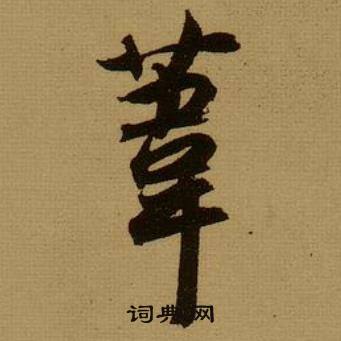 葦
词典网